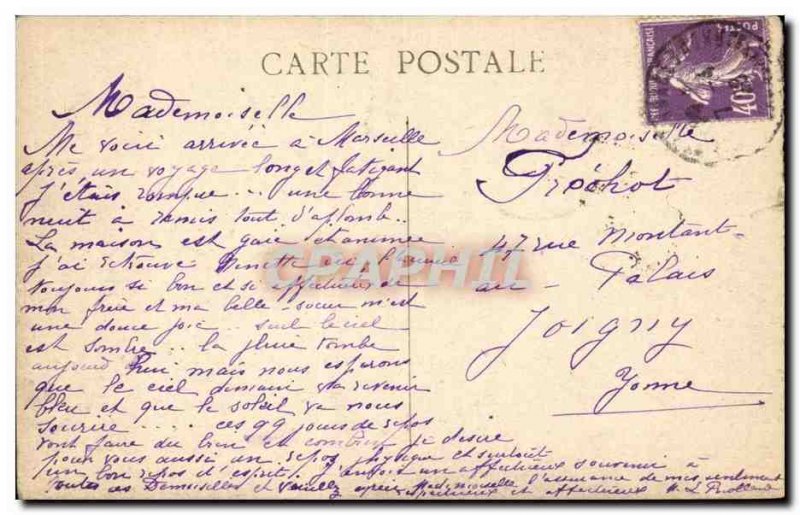 CARTE POSTALE
Mademoiselle
Me voici arrivée à Marseille
après un voyage long et fatigant
J'étais rompue ... une bonne
nuit à remis tout d'aplomb..
La maison est gaie et animée
J'ai retrouvé
toujours si bon et si affectueux de
mon frère et ma belle-soeur m'est
une douce joie .. seul le ciel
est sombre ... la pluie tombe
aujourd'hui mais nous espérons
que le ciel demain va revenir
bleu et que le soleil va nous
sourire .... ces 99 jours de repos
vont faire du bien et combien je désire
pour vous aussi un repos physique et surtout
un bon repos d'esprit. J'envoie un affectueux souvenir à
toutes ces Demoiselles et veuillez agréer Mademoiselle l'assurance de mes sentiments
respectueux et affectueux
Mademoiselle
Préchot
47 rue Montant-
au-Palais
Joigny
Yonne
POSTES
40
CPAPHIL